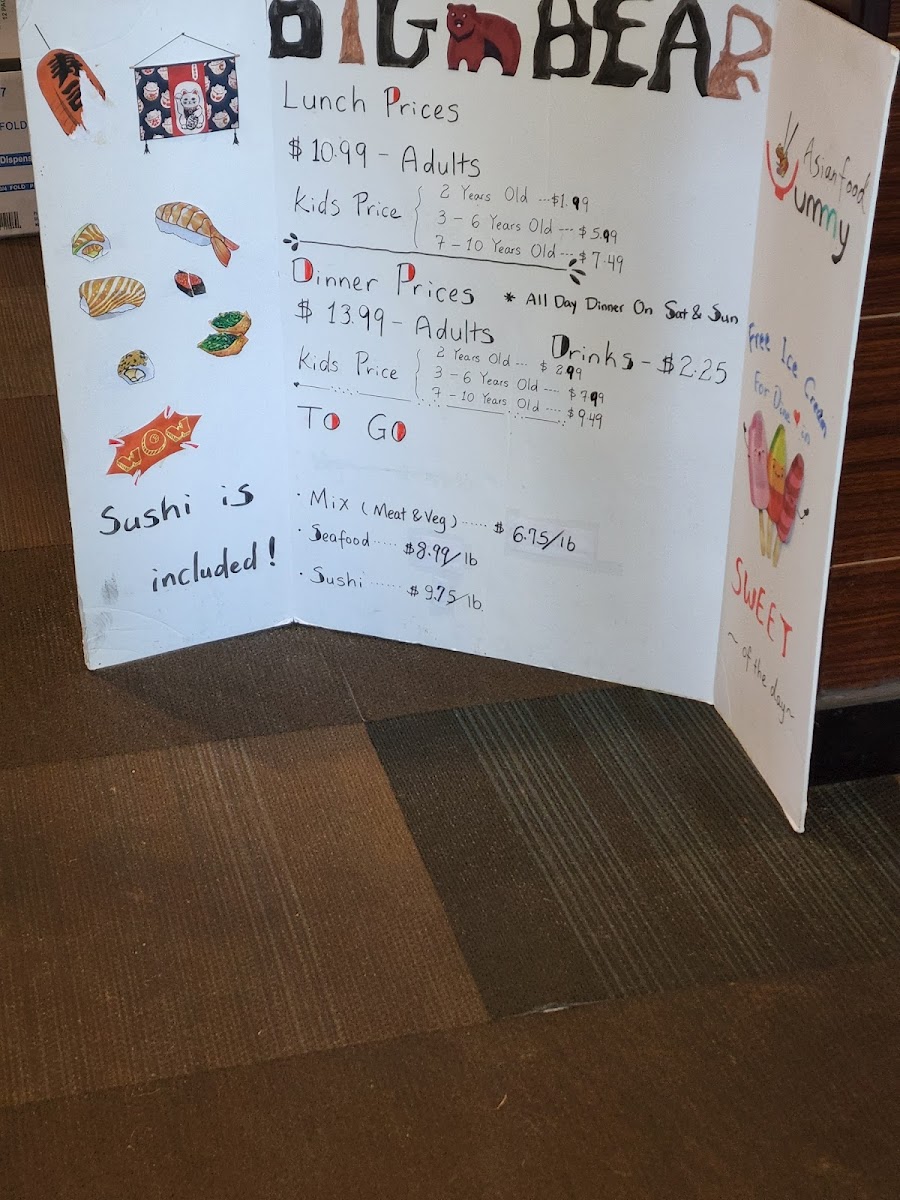 寿司
WOW
Sushi is
included!
BIG BEAR
Lunch Prices
$10.99 - Adults
Kids Price
2 Years Old ---$1.99
3 - 6 Years Old --- $5.99
7 - 10 Years Old --- $7.49
Dinner Prices * All Day Dinner On Sat & Sun
$ 13.99 - Adults
Drinks - $2.25
Kids Price
2 Years Old --- $2.99
3 - 6 Years Old ---- $7.99
7 - 10 Years Old ---- $9.49
TO GO
· Mix (Meat & Veg) ..... $ 6.75/lb
· Seafood ..... $8.99/lb
· Sushi ...... $9.75/lb
Asian food
Yummy
Free Ice Cream
For Dine in
SWEET
~ of the day~
7
FOLD
Dispens